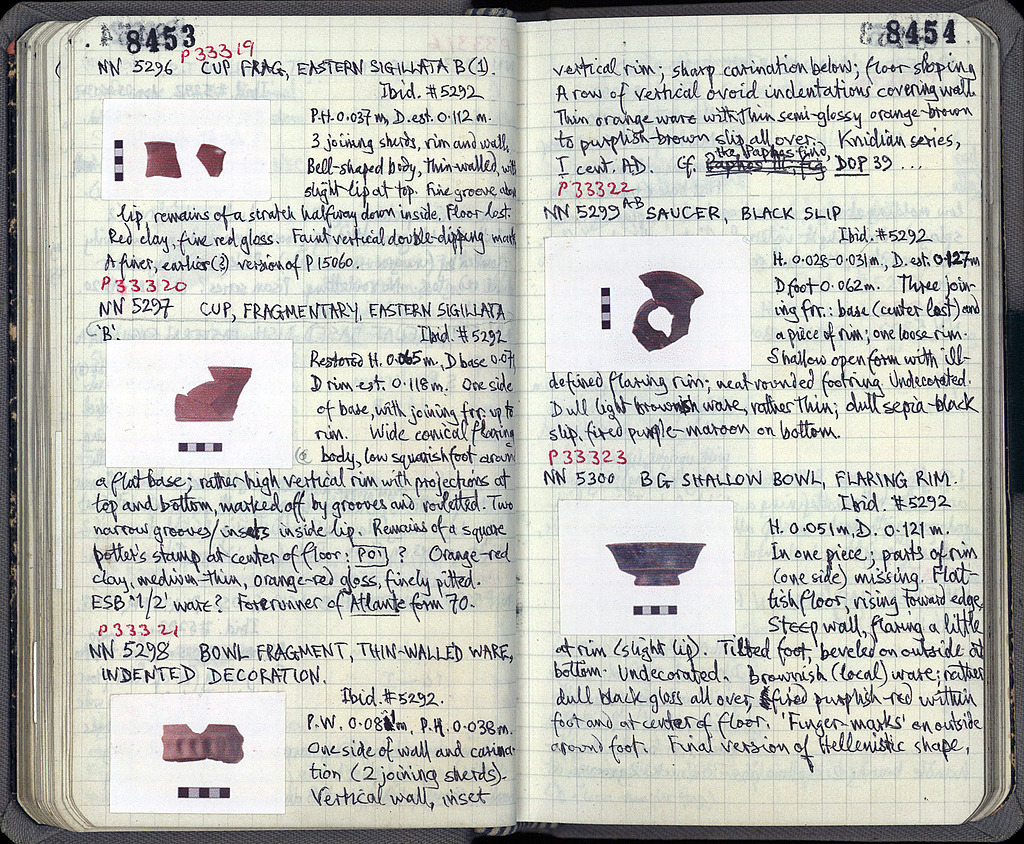 8453
P 33319
NN 5296 CUP FRAG, EASTERN SIGILLATA B(1).
Ibid. #5292
P.H. 0.037 m, D. est. 0.112 m.
3 joining sherds, rim and wall.
Bell-shaped body, thin-walled, with
slight lip at top. Fine groove above
lip remains of a scratch halfway down inside. Floor lost.
Red clay, fine red gloss. Faint vertical double-dipping mark
A finer, earlier(?) version of P 15060.
P 33320
NN 5297 CUP, FRAGMENTARY, EASTERN SIGILLATA
'B'.
Ibid. #5292
Restored H. 0.065 m, D base 0.07
D rim est. 0.118 m. One side
of base, with joining frr. up to
rim. Wide conical flaring
body, low squarish foot around
a flat base; rather high vertical rim with projections at
top and bottom, marked off by grooves and rouletted. Two
narrow grooves/insets inside lip. Remains of a square
potter's stamp at center of floor: ? Orange-red
clay, medium-thin, orange-red gloss, finely pitted.
ESB '1/2' ware? Forerunner of Atlante form 70.
P 33321
NN 5298 BOWL FRAGMENT, THIN-WALLED WARE,
INDENTED DECORATION.
Ibid. #5292.
P.W. 0.081 m, P.H. 0.038 m.
One side of wall and carina-
tion (2 joining sherds).
Vertical wall, inset
8454
vertical rim; sharp carination below; floor sloping
A row of vertical ovoid indentations covering wall.
Thin orange ware with thin semi-glossy orange-brown
to purplish-brown slip all over. Knidian series,
I cent. A.D. Cf. the Paphos find DOP 39 ...
P 33322
NN 5299 A-B SAUCER, BLACK SLIP
Ibid. #5292
H. 0.028-0.031m, D. est. 0.127m
D foot 0.062m. Three join-
ing frr.: base (center lost) and
a piece of rim; one loose rim.
Shallow open form with ill-
defined flaring rim; neat rounded footring. Undecorated.
Dull light brownish ware, rather thin; dull sepia-black
slip, fired purple-maroon on bottom.
P 33323
NN 5300 BG SHALLOW BOWL, FLARING RIM.
Ibid. #5292
H. 0.051m, D. 0.121 m.
In one piece; parts of rim
(one side) missing. Flat-
tish floor, rising toward edge.
Steep wall, flaring a little
at rim (slight lip). Tilted foot, beveled on outside at
bottom. Undecorated. Brownish (local) ware; rather
dull black gloss all over, fired purplish-red within
foot and at center of floor. 'Finger-marks' on outside
around foot. Final version of Hellenistic shape,